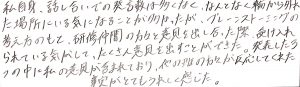 私自身、話し合いでの発言数は多くなく、なんとなく輪から外れ
た場所にいる気になることが多かったが、ブレーンストーミングの
考え方のもと、研修仲間の方々と意見を出し合った際、受け入れ
られている気がして、たくさん意見を出すことができた。発表したう
ちの中に私の意見が含まれており、他の班の方々が反応してくれた
事実がとてもうれしく感じた。